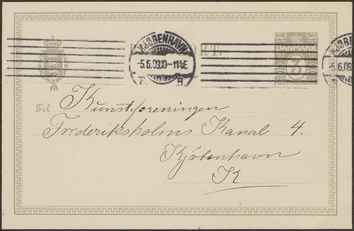 KJØBENHAVN
5.6.09.10-11E
3
Til Kunstforeningen
Frederiksholms Kanal 4.
Kjøbenhavn
K